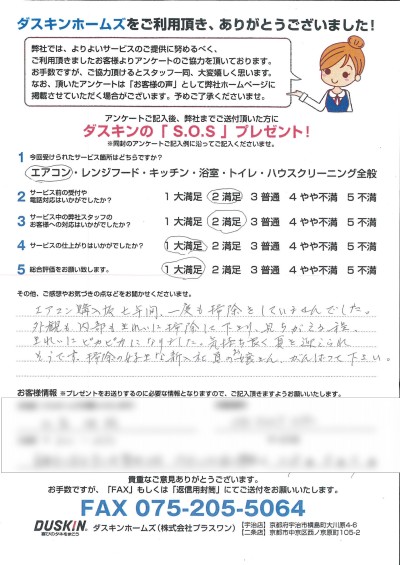 ダスキンホームズをご利用頂き、ありがとうございました!
弊社では、よりよいサービスのご提供に努めるべく、
ご利用頂きましたお客様よりアンケートのご協力を頂いております。
お手数ですが、ご協力頂けるとスタッフ一同、大変嬉しく思います。
なお、頂いたアンケートは「お客様の声」として弊社ホームページに
掲載させていただく場合がございます。予めご了承くださいませ。
アンケートご記入後、弊社までご送付頂いた方に
ダスキンの「S.O.S」プレゼント!
※同封のアンケートご記入例に沿ってご記入くださいませ。
1 今回受けられたサービス箇所はどちらですか?
エアコン・レンジフード・キッチン・浴室・トイレ・ハウスクリーニング全般
2 サービス前の受付や
電話対応はいかがでしたか? 1 大満足 2 満足 3 普通 4 やや不満 5 不満
3 サービス中の弊社スタッフの
お客様への対応はいかがでしたか? 1 大満足 2 満足 3 普通 4 やや不満 5 不満
4 サービスの仕上がりはいかがでしたか? 1 大満足 2 満足 3 普通 4 やや不満 5 不満
5 総合評価をお願い致します。 1 大満足 2 満足 3 普通 4 やや不満 5 不満
その他、ご感想やお気づきの点などをお聞かせくださいませ。
エアコン購入後七年間、一度も掃除をしていませんでした。
外観も内部もきれいに掃除して下さり、見ちがえる程、
きれいにピカピカになりました。気持ち良く夏を迎えられ
そうです。掃除の好きな新入社員の娘さん、がんばって下さい。
お客様情報 ※プレゼントをお送りするのに必要な情報となりますので、ご記入頂きますようお願いいたします。
貴重なご意見ありがとうございます。
お手数ですが、「FAX」もしくは「返信用封筒」にてご送付をお願いいたします。
FAX 075-205-5064
DUSKIN 喜びのタネをまこう ダスキンホームズ(株式会社プラスワン) 【宇治店】京都府宇治市槇島町大川原4-6
【二条店】京都市中京区西ノ京原町105-2